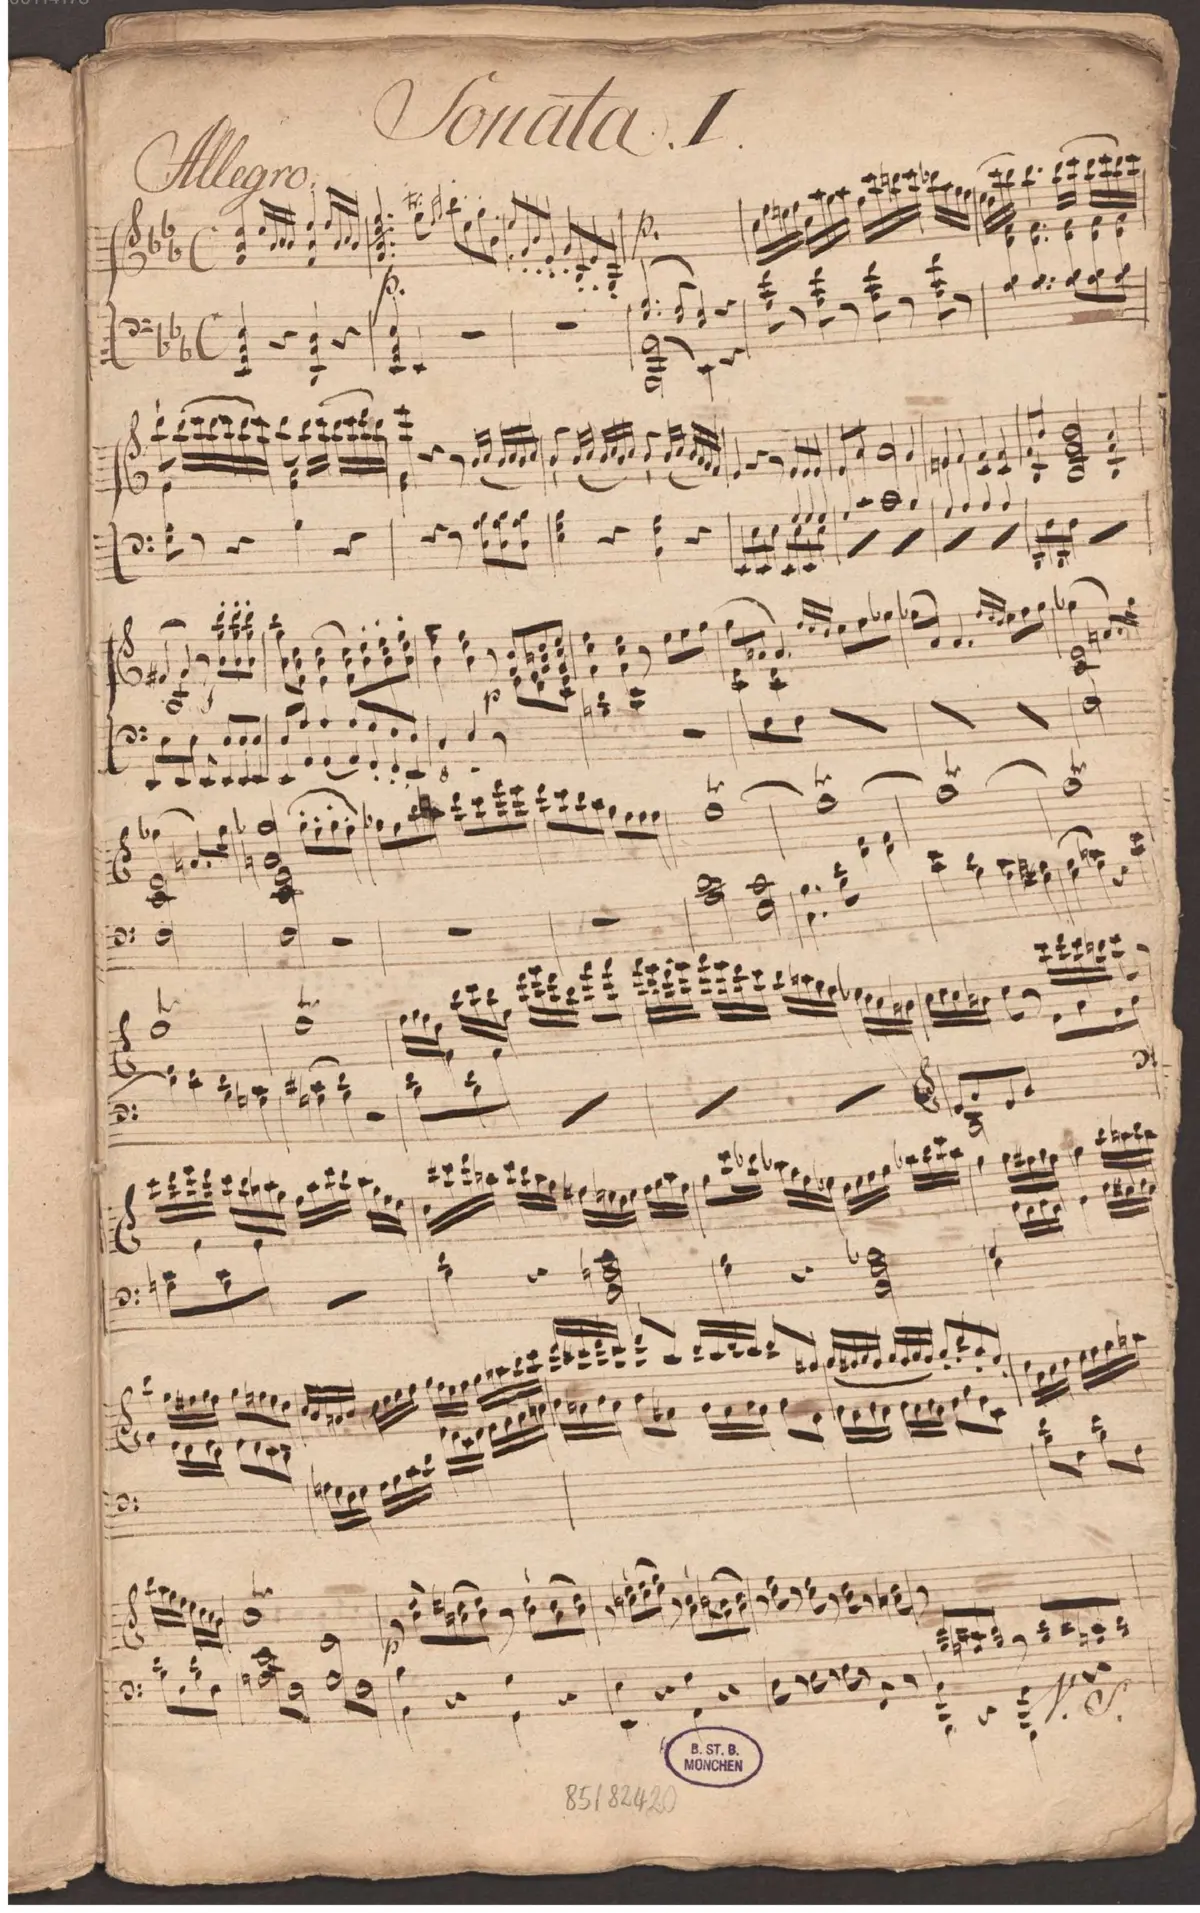 Sonata. I.
Allegro.
p.
p.
p
p
V. S.
B. ST. B.
MÜNCHEN
85/82420